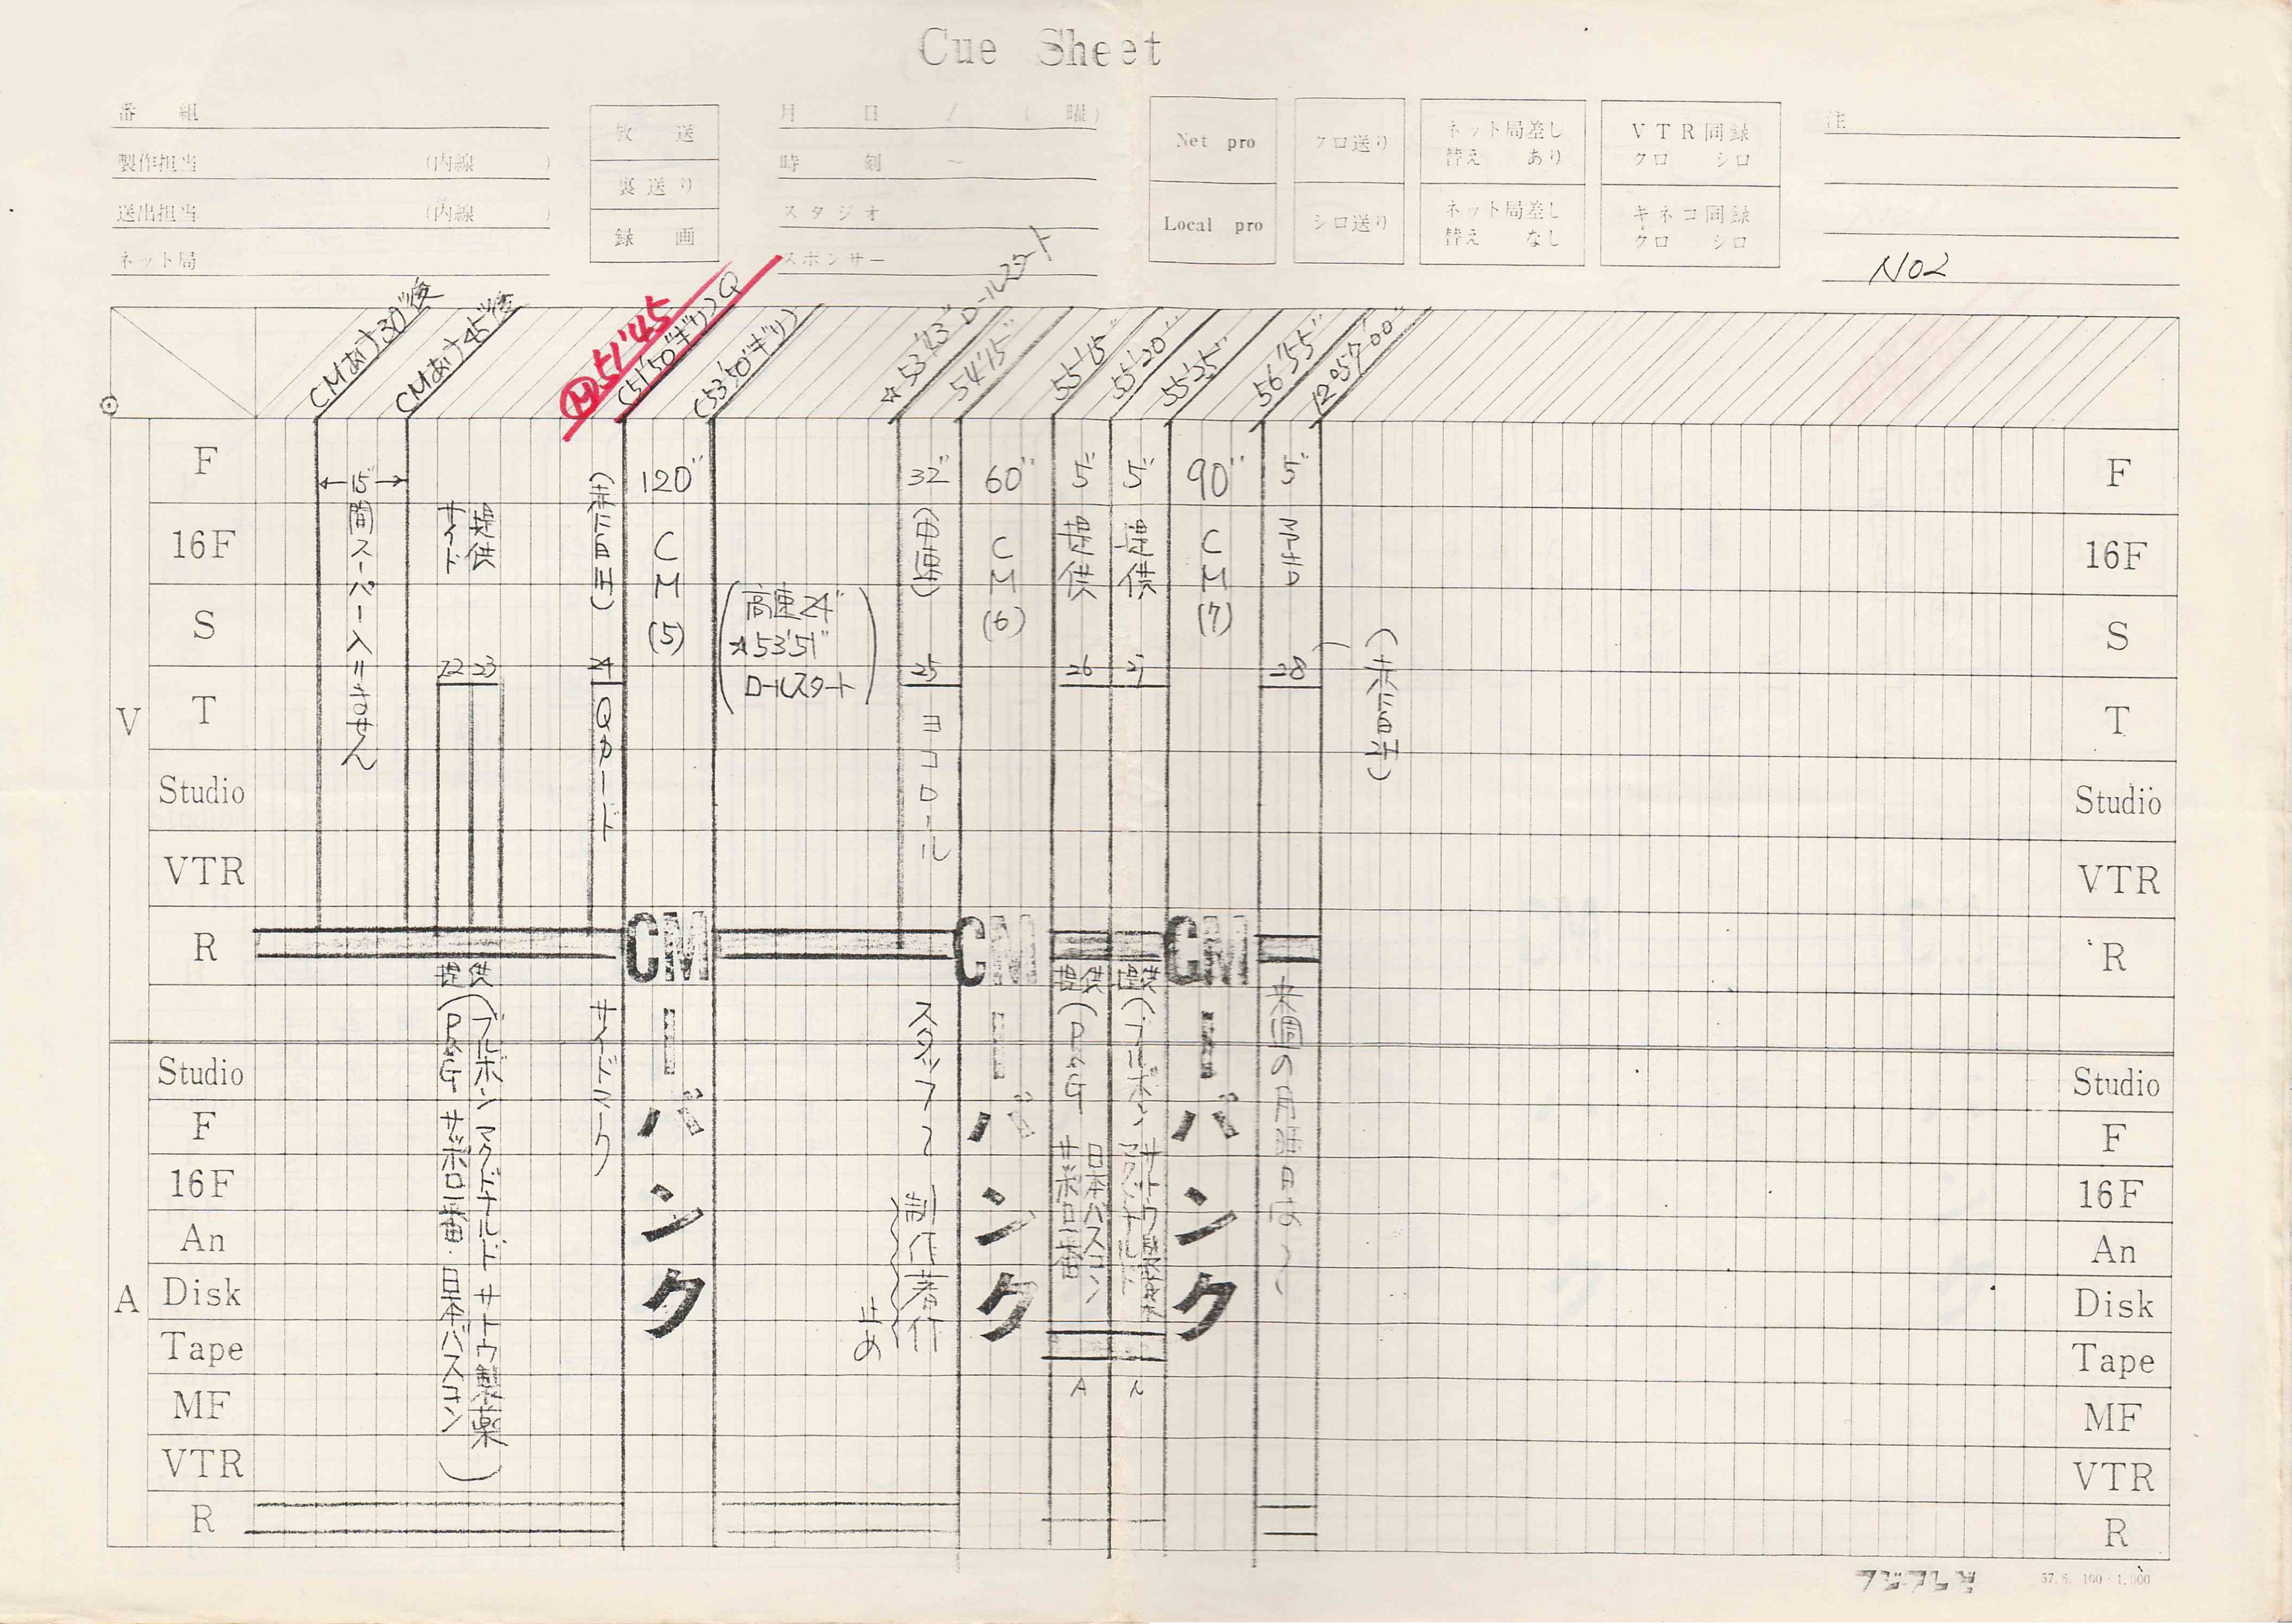 Cue Sheet
番 組
製作担当 (内線 )
送出担当 (内線 )
ネット局
放 送
裏 送 り
録 画
月 日 / ( 曜)
時 刻 ~
スタジオ
スポンサー
Net pro
Local pro
クロ送り
シロ送り
ネット局差し
替え あり
ネット局差し
替え なし
VTR同録
クロ シロ
キネコ同録
クロ シロ
注
NO2
CMあけ30"後
CMあけ45"後
Ⓜ51'45
(51'50"ギリ)Q
(53'50"ギリ)
☆53'43"ロールスタート
54'15"
55'15"
55'20"
55'25"
56'55"
12°57'00"
V
F
16F
S
T
Studio
VTR
R
A
Studio
F
16F
An
Disk
Tape
MF
VTR
R
←15"→
間スーパー入れません
サイド
提供
22 23
提供
(P&G サッポロ一番・日本バスコン
ブルボン マクドナルド サトウ製薬)
24
Qカード
サイドマーク
120"
CM
(5)
CMーバンク
(高速24"
☆53'51"
ロールスタート)
32"
25
ヨコロール
スタッフ〜
制作著作
止め
60"
CM
(6)
CMーバンク
5"
提供
26
提供
(P&G
サッポロ一番
日本バスコン
A
5"
提供
27
提供
(ブルボン
マクドナルド
サトウ製薬
90"
CM
(7)
CMーバンク
5"
28
来週の月曜日は〜
F
16F
S
T
Studio
VTR
R
Studio
F
16F
An
Disk
Tape
MF
VTR
R
フジテレビ
57. 6. 100×1,000